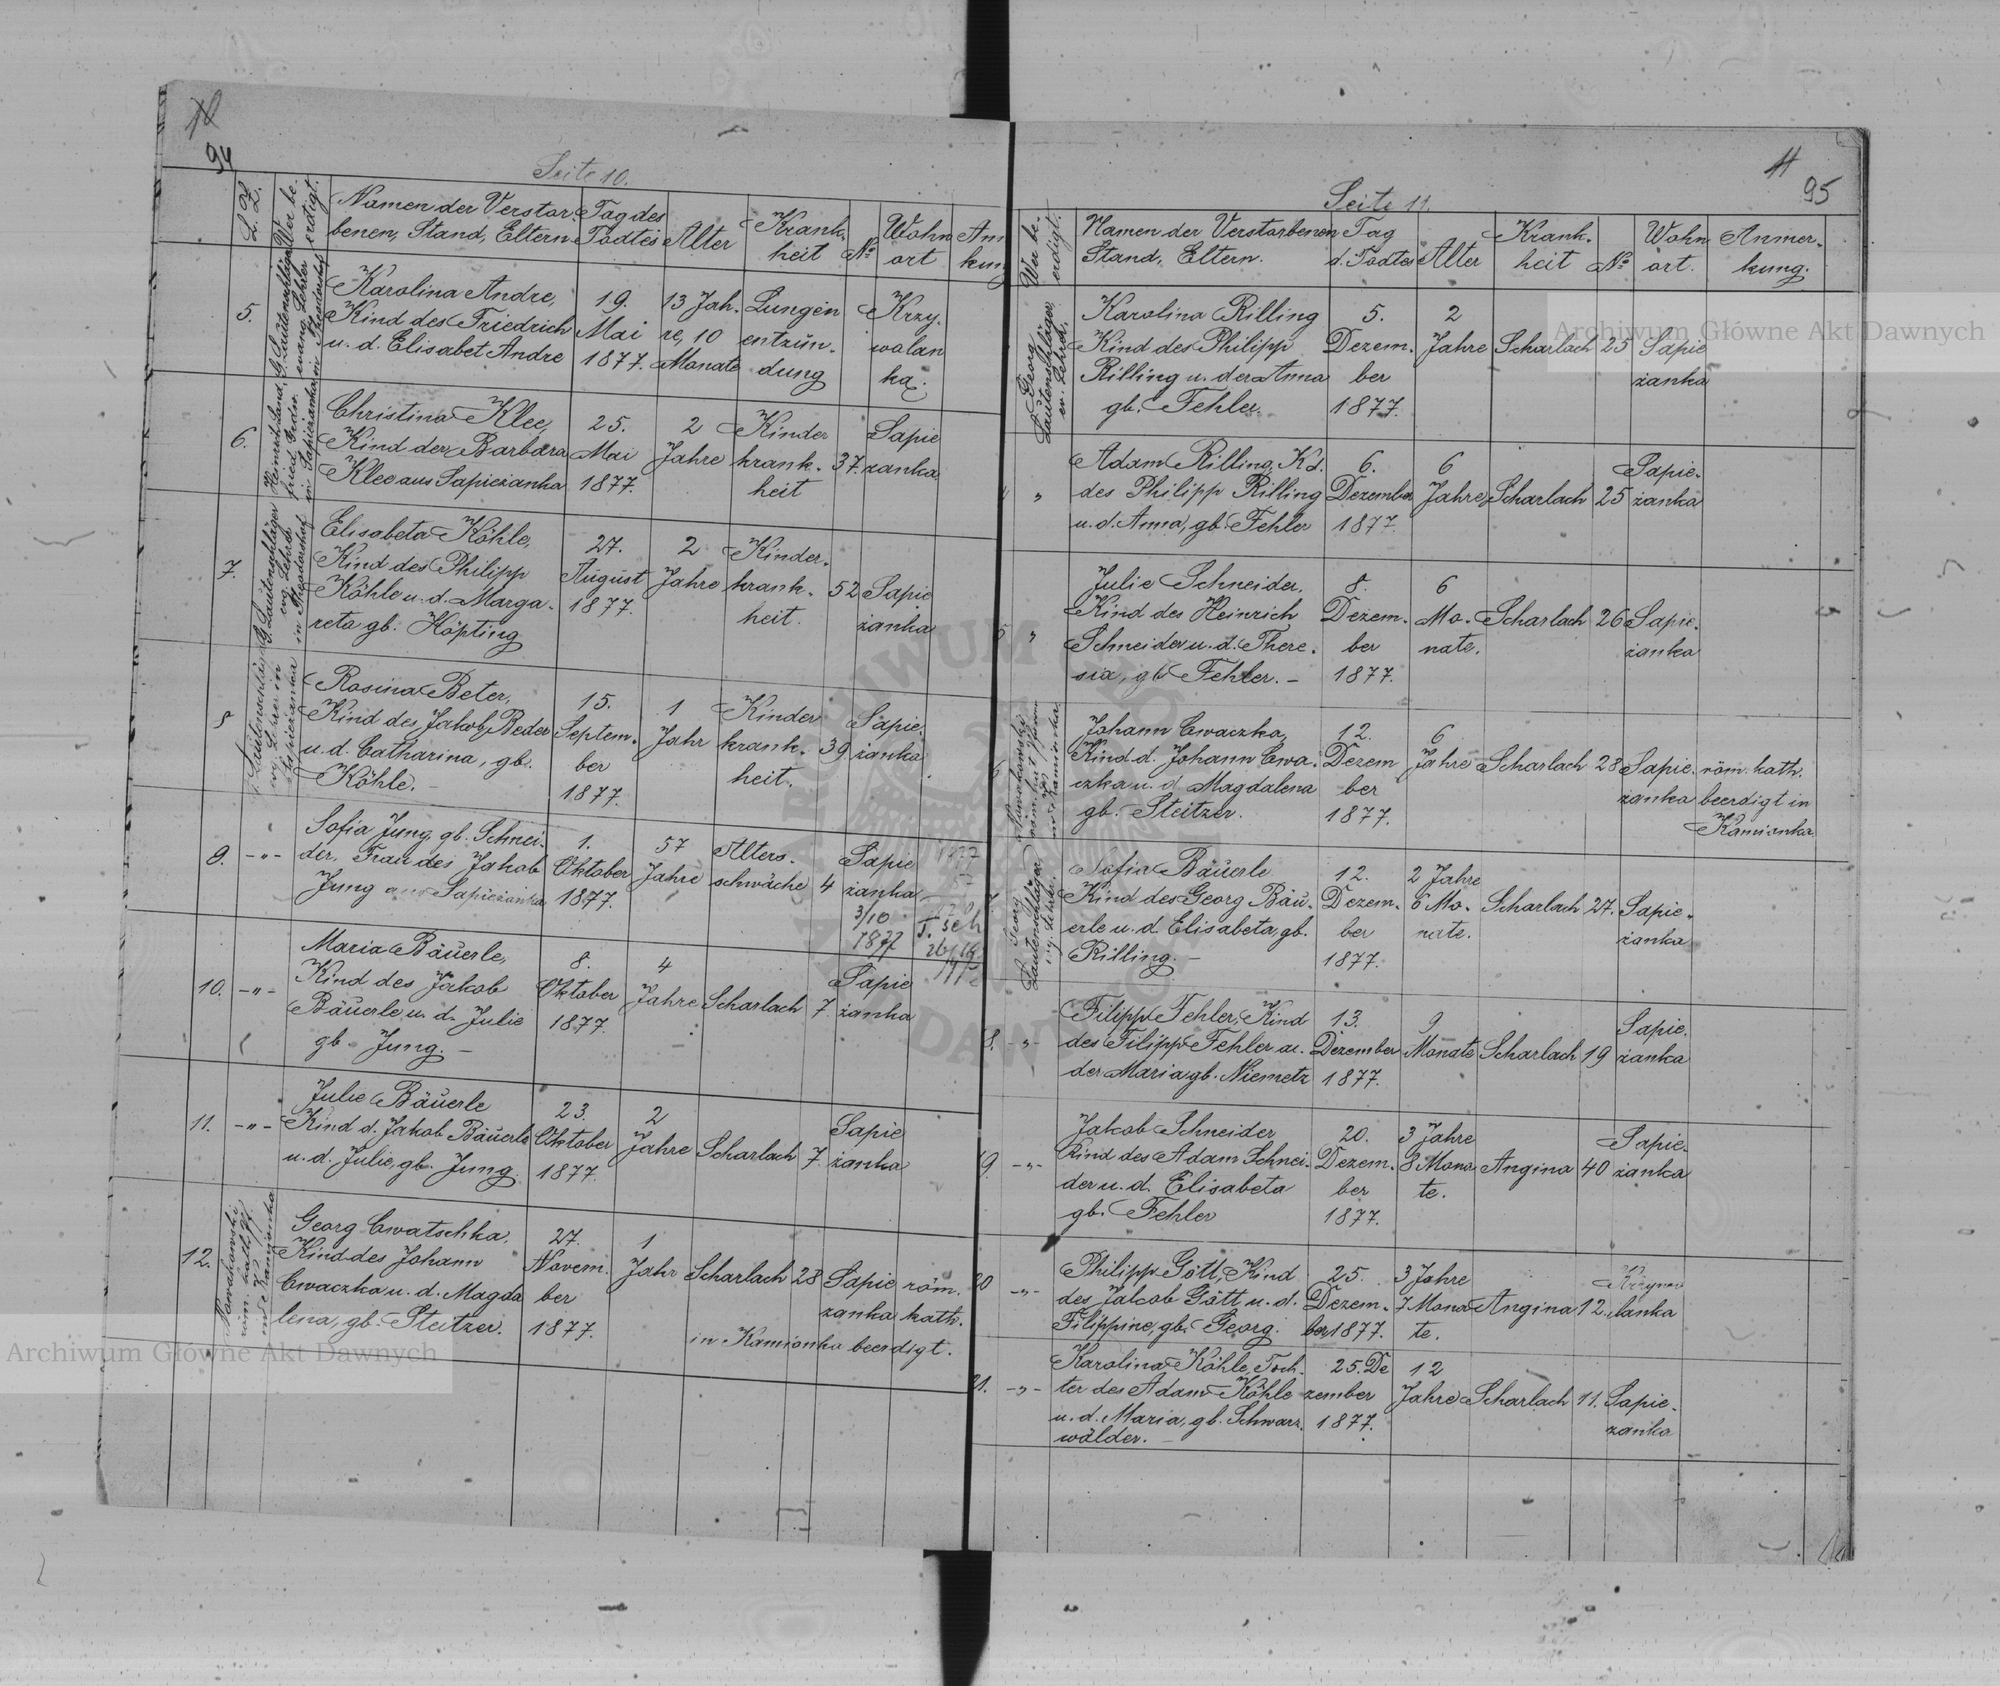 94
Seite 10.
L. Z.
Wer be-
erdigt.
Namen der Verstor-
benen, Stand, Eltern
Tag des
Todtes
Alter
Krank-
heit
No
Wohn
ort
An
kung
5.
Karolina Andre,
Kind des Friedrich
u. d. Elisabet Andre
19.
Mai
1877.
13 Jah-
re, 10
Monate
Lungen
entzün-
dung
Krzy-
wolan
ka.
6.
Christina Klee,
Kind der Barbara
Klee aus Sapiezanka
25.
Mai
1877.
2
Jahre
Kinder
krank-
heit
37.
Sapie
zanka
7.
G. Lautenschläger
evg. Lehrer
Elisabeta Köhle,
Kind des Philipp
Köhle u. d. Marga-
reta gb. Köpting
27.
August
1877.
2
Jahre
Kinder-
krank-
heit.
52
Sapie
żanka
8
Rosina Beter,
Kind des Jakob Beder
u. d. Catharina, gb.
Köhle. -
15.
Septem-
ber
1877.
1
Jahr
Kinder
krank-
heit.
39.
Sapie.
żanka
9.
-"-
Sofia Jung, gb. Schnei-
der, Frau des Jakob
Jung aus Sapiezanka
1.
Oktober
1877.
57
Jahre
Alters-
schwäche
4
Sapie
żanka
3/10
1877
10.
-"-
Maria Bäuerle,
Kind des Jakob
Bäuerle u. d. Julie
gb. Jung. -
8.
Oktober
1877.
4
Jahre
Scharlach
7.
Sapie
żanka
11.
-"-
Julie Bäuerle
Kind d. Jakob Bäuerle
u. d. Julie, gb. Jung.
23.
Oktober
1877.
2
Jahre
Scharlach
7.
Sapie
żanka
12.
Georg Cwatschka,
Kind des Johann
Cwaczka u. d. Magda
lena, gb. Steitzer.
27.
Novem-
ber
1877.
1
Jahr
Scharlach
28
Sapie
zanka
röm.
kath.
in Kamionka beerdigt.
11
95
Seite 11.
Wer be-
erdigt.
Namen der Verstorbenen
Stand, Eltern.
Tag
d. Todtes
Alter
Krank-
heit
No
Wohn
ort.
Anmer-
kung.
Georg
Lautenschläger,
ev. Lehrer.
Karolina Rilling
Kind des Philipp
Rilling u. der Anna
gb. Fehler.
5.
Dezem-
ber
1877.
2
Jahre
Scharlach
25
Sapie
żanka
"
Adam Rilling, Kd.
des Philipp Rilling
u. d. Anna, gb. Fehler
6.
Dezember
1877.
6
Jahre
Scharlach
25
Sapie-
żanka
"
Julie Schneider,
Kind des Heinrich
Schneider u. d. There-
sia, gb. Fehler. -
8.
Dezem-
ber
1877.
6
Mo-
nate.
Scharlach
26
Sapie-
żanka
Johann Cwaczka,
Kind d. Johann Cwa-
czka u. d Magdalena
gb. Steitzer.
12.
Dezem
ber
1877.
6
Jahre
Scharlach
28
Sapie-
żanka
röm. kath.
beerdigt in
Kamionka
7.
Georg
Lautenschläger
evg. Lehrer.
Sofia Bäuerle
Kind des Georg Bäu-
erle u. d. Elisabeta, gb.
Rilling. -
12.
Dezem-
ber
1877.
2 Jahre
6 Mo-
nate.
Scharlach
27.
Sapie-
żanka
8.
-"-
Filipp Fehler, Kind
des Filipp Fehler u.
der Maria gb. Niemetz
13.
Dezember
1877.
9
Monate
Scharlach
19
Sapie.
żanka
9.
-"-
Jakob Schneider
Kind des Adam Schnei-
der u. d. Elisabeta
gb. Fehler
20.
Dezem-
ber
1877.
3 Jahre
8 Mona
te.
Angina
40
Sapie-
żanka
20
-"-
Philipp Gött, Kind
des Jakob Gött u. d.
Filippine, gb. Georg.
25.
Dezem-
ber 1877.
3 Jahre
7 Mona
te.
Angina
12.
lanka
21.
-"-
Karolina Köhle, Toch-
ter des Adam Köhle
u. d. Maria, gb. Schwarz-
wälder. -
25. De
zember
1877.
12
Jahre
Scharlach
11.
Sapie-
zanka
Archiwum Główne Akt Dawnych
Archiwum Główne Akt Dawnych